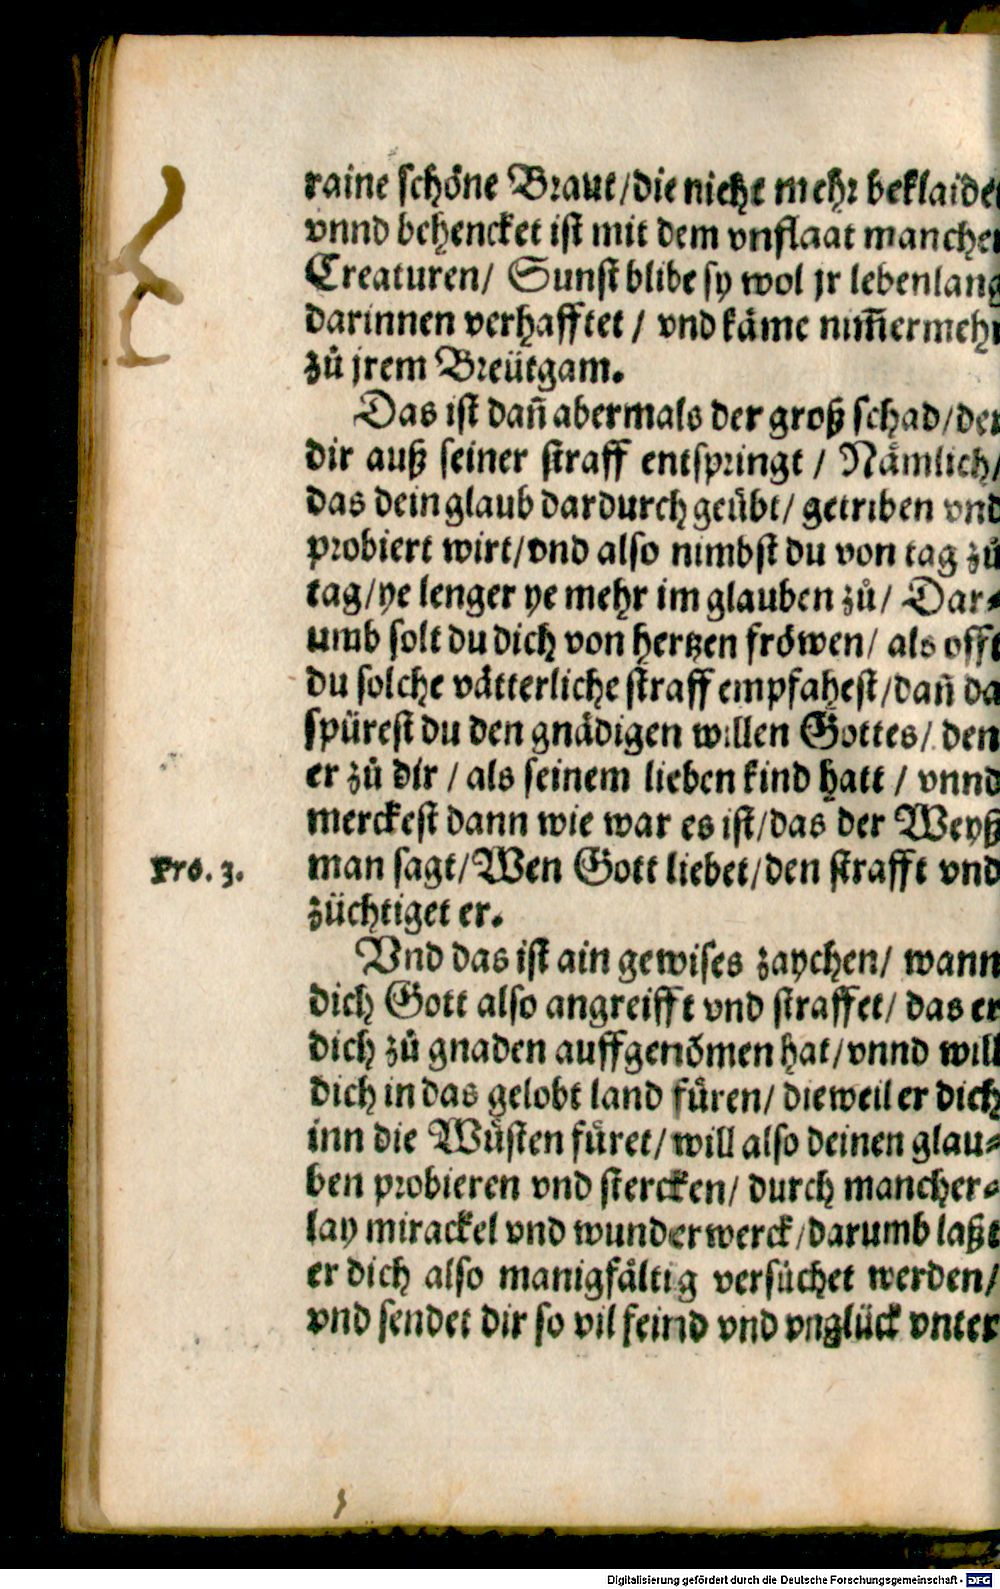 raine schöne Braut/die nicht mehr beklaidet
vnnd behencket ist mit dem vnflaat mancher
Creaturen/ Sunst blibe sy wol jr lebenlang
darinnen verhafftet / vnd käme nim̄ermehr
zů jrem Breütgam.
Das ist dañ abermals der groß schad/der
dir auß seiner straff entspringt / Nämlich/
das dein glaub dardurch geübt/ getriben vnd
probiert wirt/vnd also nimbst du von tag zů
tag/ye lenger ye mehr im glauben zů/ Dar⸗
umb solt du dich von hertzen fröwen/ als offt
du solche vätterliche straff empfahest/dañ da
spürest du den gnädigen willen Gottes/ den
er zů dir / als seinem lieben kind hatt / vnnd
merckest dann wie war es ist/das der Weyß
Pro. 3. man sagt/Wen Gott liebet/den strafft vnd
züchtiget er.
Vnd das ist ain gewises zaychen/ wann
dich Gott also angreifft vnd straffet/ das er
dich zů gnaden auffgenōmen hat/vnnd will
dich in das gelobt land füren/ dieweil er dich
inn die Wüsten füret/will also deinen glau⸗
ben probieren vnd stercken/ durch mancher⸗
lay mirackel vnd wunderwerck/darumb laßt
er dich also manigfältig versůchet werden/
vnd sendet dir so vil feind vnd vnglück vnter
Digitalisierung gefördert durch die Deutsche Forschungsgemeinschaft - DFG